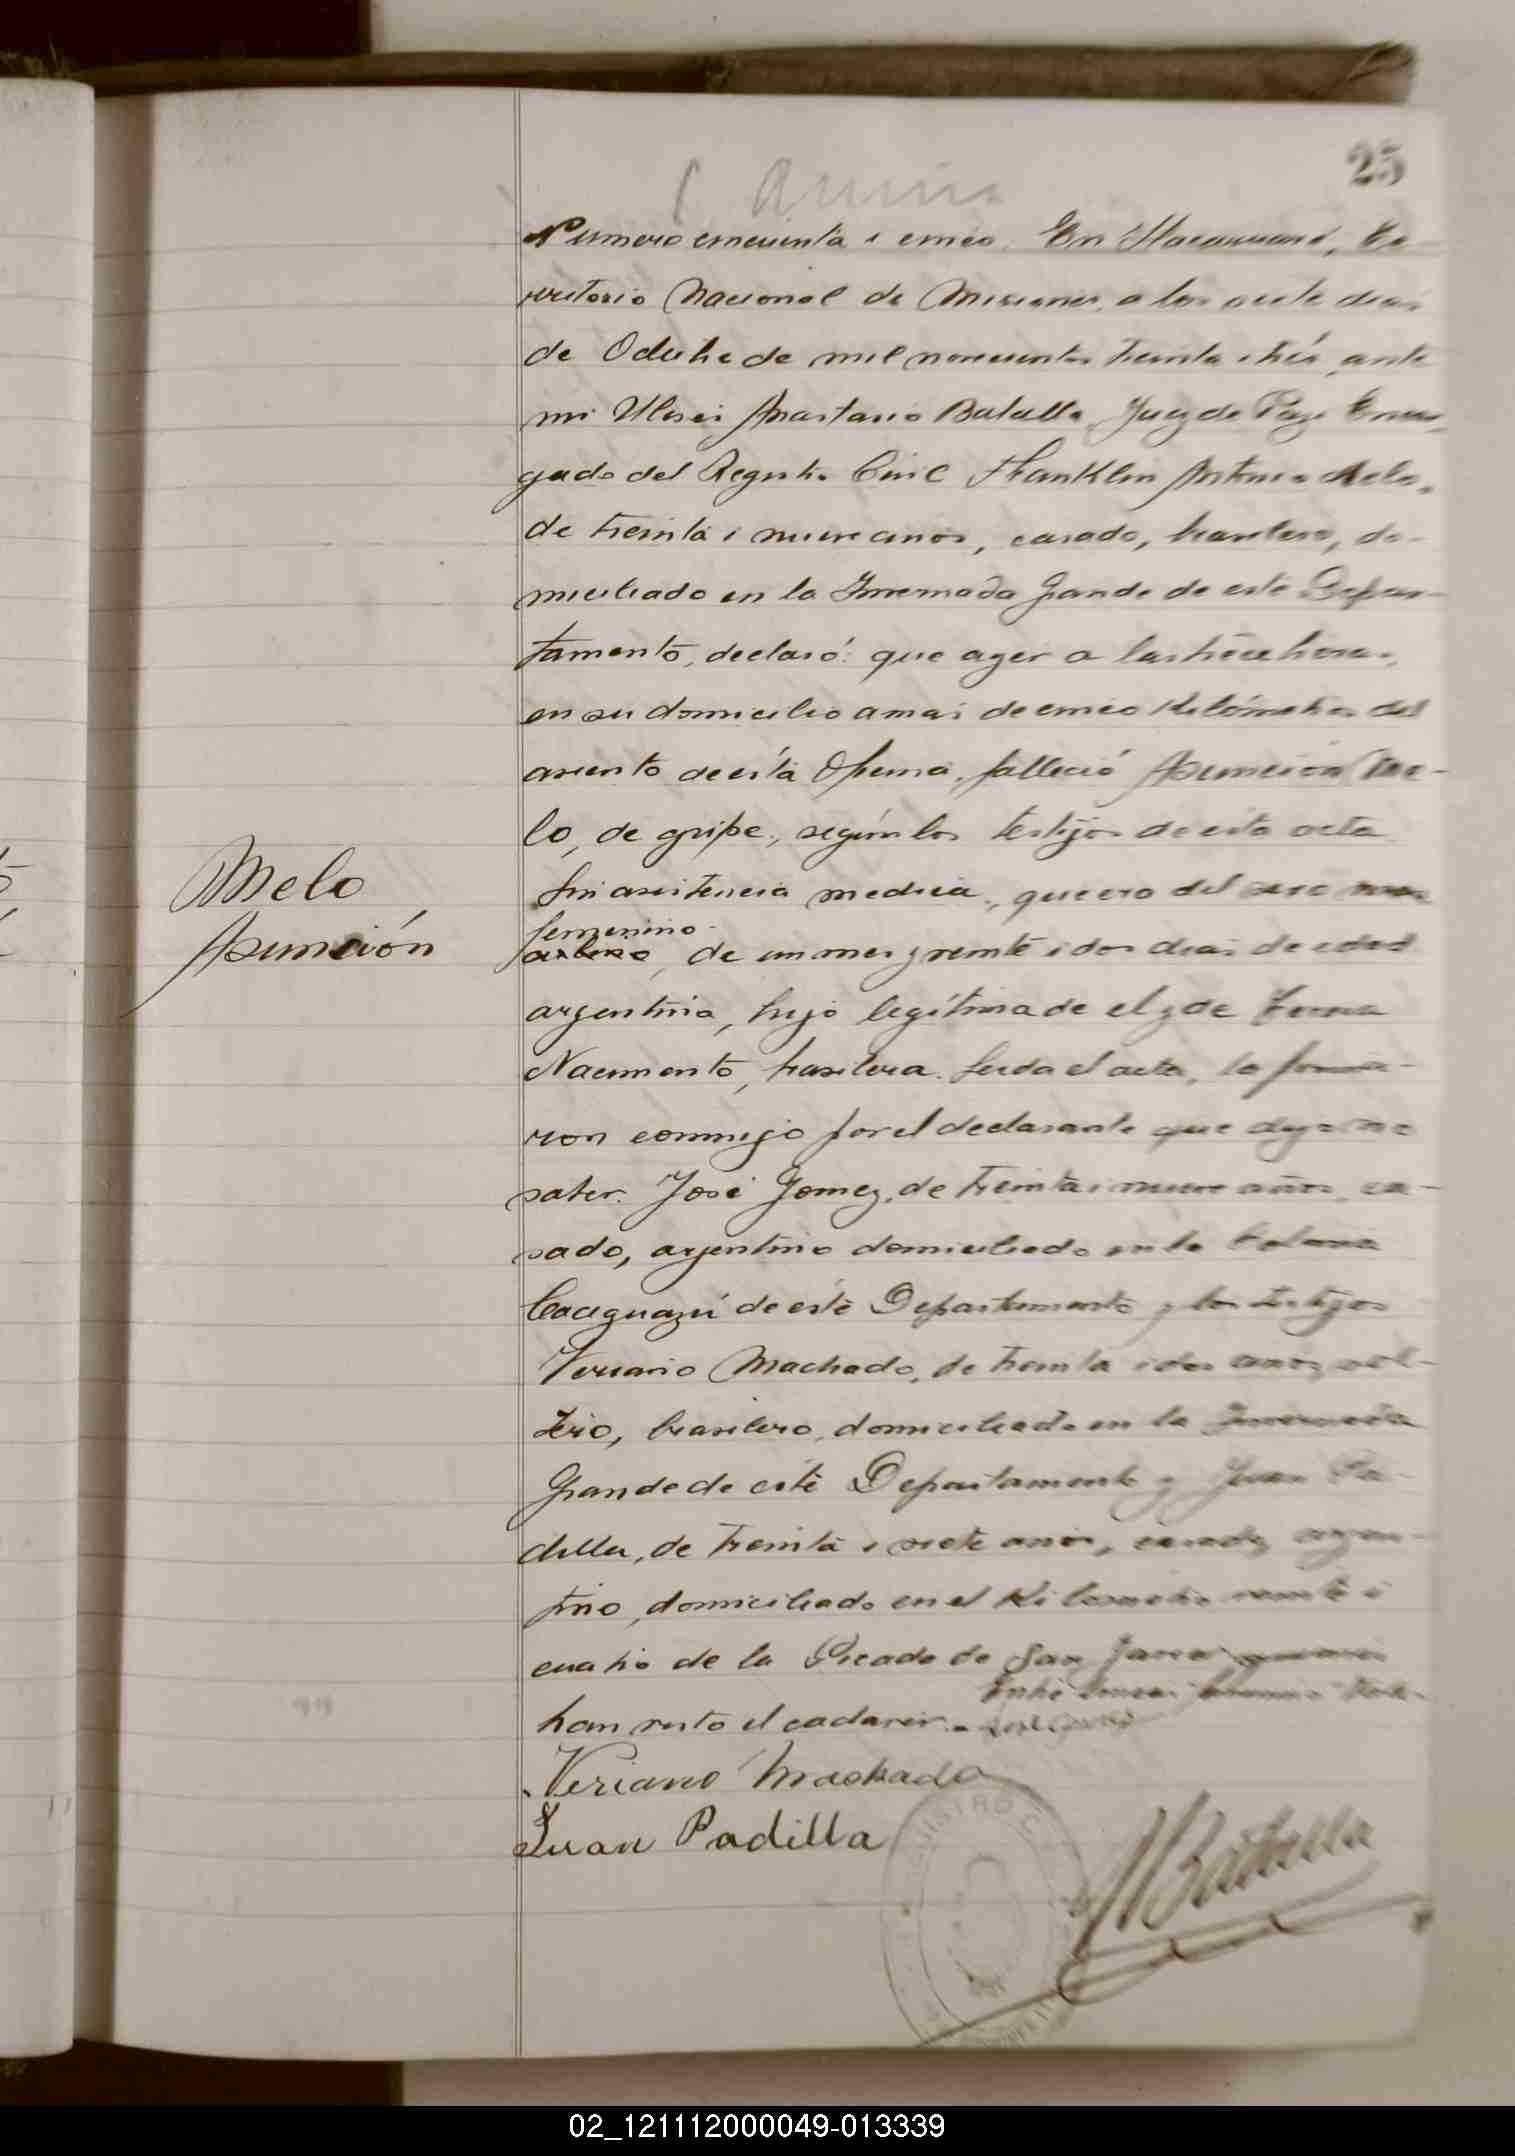 25
Numero cincuenta i cinco. En Itacaruaré, Te
rritorio Nacional de Misiones, a los siete dias
de Octubre de mil novecientos treinta i trés, ante
mi Ulises Anastasio Batalla, Juez de Paz Encar
gado del Registro Civil Franklin Antonio Melo,
de treinta i nueve años, casado, brasilero, do-
miciliado en la Invernada Grande de este Depar-
tamento, declaró: que ayer a las trece horas,
en su domicilio a mas de cinco Kilómetros del
asiento de ésta Oficina, falleció Asunción Me-
lo, de gripe, según los testigos de esta acta
Melo
Asunción
sin asistencia medica, que era del sexo mas
femenino
culino, de un mes y veinte i dos dias de edad
argentina, hijo legítima de el y de
Nacimento, brasilera. Leida el acta, la firma-
ron conmigo por el declarante que dijo no
saber. José Gomez, de treinta i nueve años, ca-
sado, argentino domiciliado en la Colonia
Caaguazú de éste Departamento y los testigos
Veriano Machado, de treinta i dos años, sol-
tero, brasilero, domiciliado en la Invernada
Grande de esté Departamento y Juan Pa-
dilla, de treinta i siete años, casado, argen-
tino, domiciliado en el Kilometro veinte i
cuatro de la Picada de San Javier quienes
Entre lineas femenino Vale.
han visto el cadaver.-
Veriano Machado
Juan Padilla
UBatalla
REGISTRO C
02_121112000049-013339